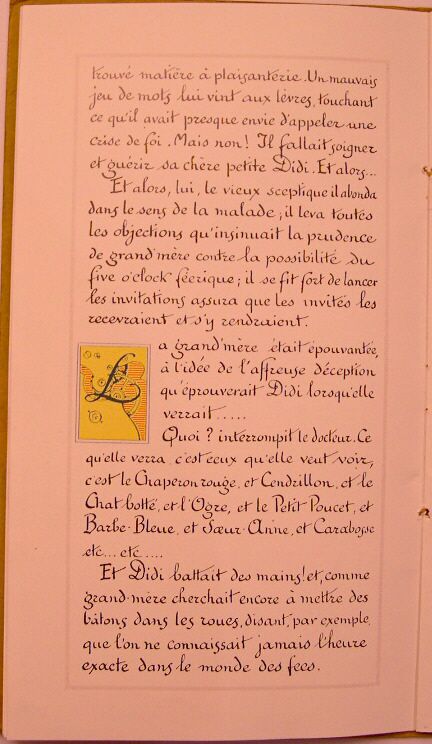 trouvé matière à plaisanterie. Un mauvais
jeu de mots lui vint aux lèvres, touchant
ce qu'il avait presque envie d'appeler une
crise de foi. Mais non! Il fallait soigner
et guérir sa chère petite Didi. Et alors...
Et alors, lui, le vieux sceptique il abonda
dans le sens de la malade; il leva toutes
les objections qu'insinuait la prudence
de grand'mère contre la possibilité du
five o'clock féerique; il se fit fort de lancer
les invitations assura que les invités les
recevraient et s'y rendraient.
La grand'mère était épouvantée,
à l'idée de l'affreuse déception
qu'éprouverait Didi lorsqu'elle
verrait.....
Quoi? interrompit le docteur. Ce
qu'elle verra, c'est ceux qu'elle veut voir,
c'est le Chaperon rouge, et Cendrillon, et le
Chat botté, et l'Ogre, et le Petit Poucet, et
Barbe-Bleue, et Sœur-Anne, et Carabosse
etc... etc....
Et Didi battait des mains! et, comme
grand-mère cherchait encore à mettre des
bâtons dans les roues, disant, par exemple,
que l'on ne connaissait jamais l'heure
exacte dans le monde des fees.